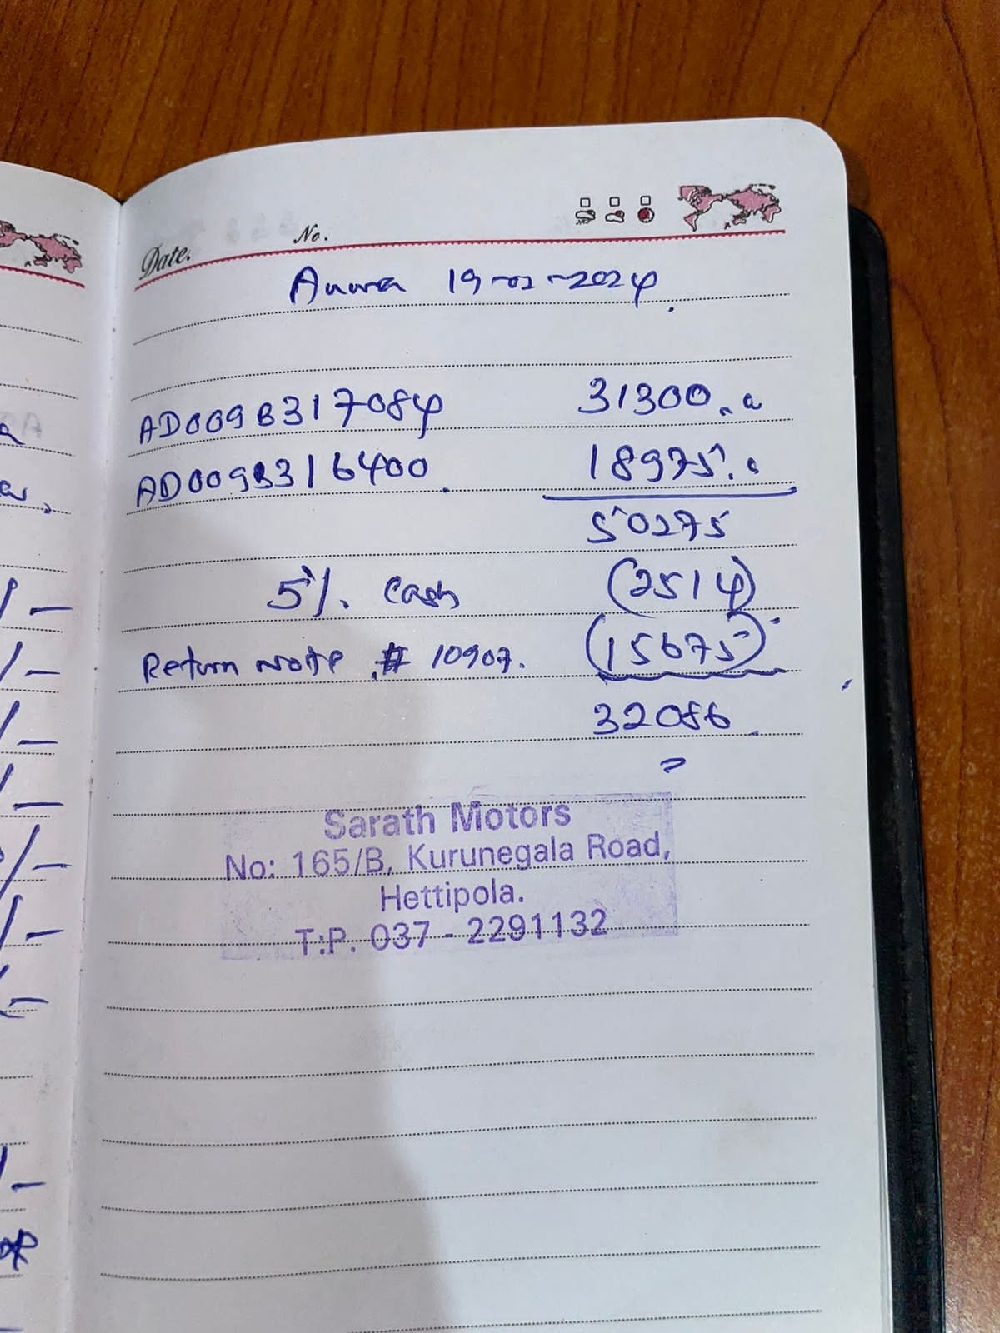 Date.
No.
Anura 19-02-2024
AD009B317084 31300.00
AD009B316400 18975.00
50275
5% Cash (2514)
Return Note # 10907. (15675)
32086
Sarath Motors
No: 165/B, Kurunegala Road,
Hettipola.
T.P. 037 - 2291132